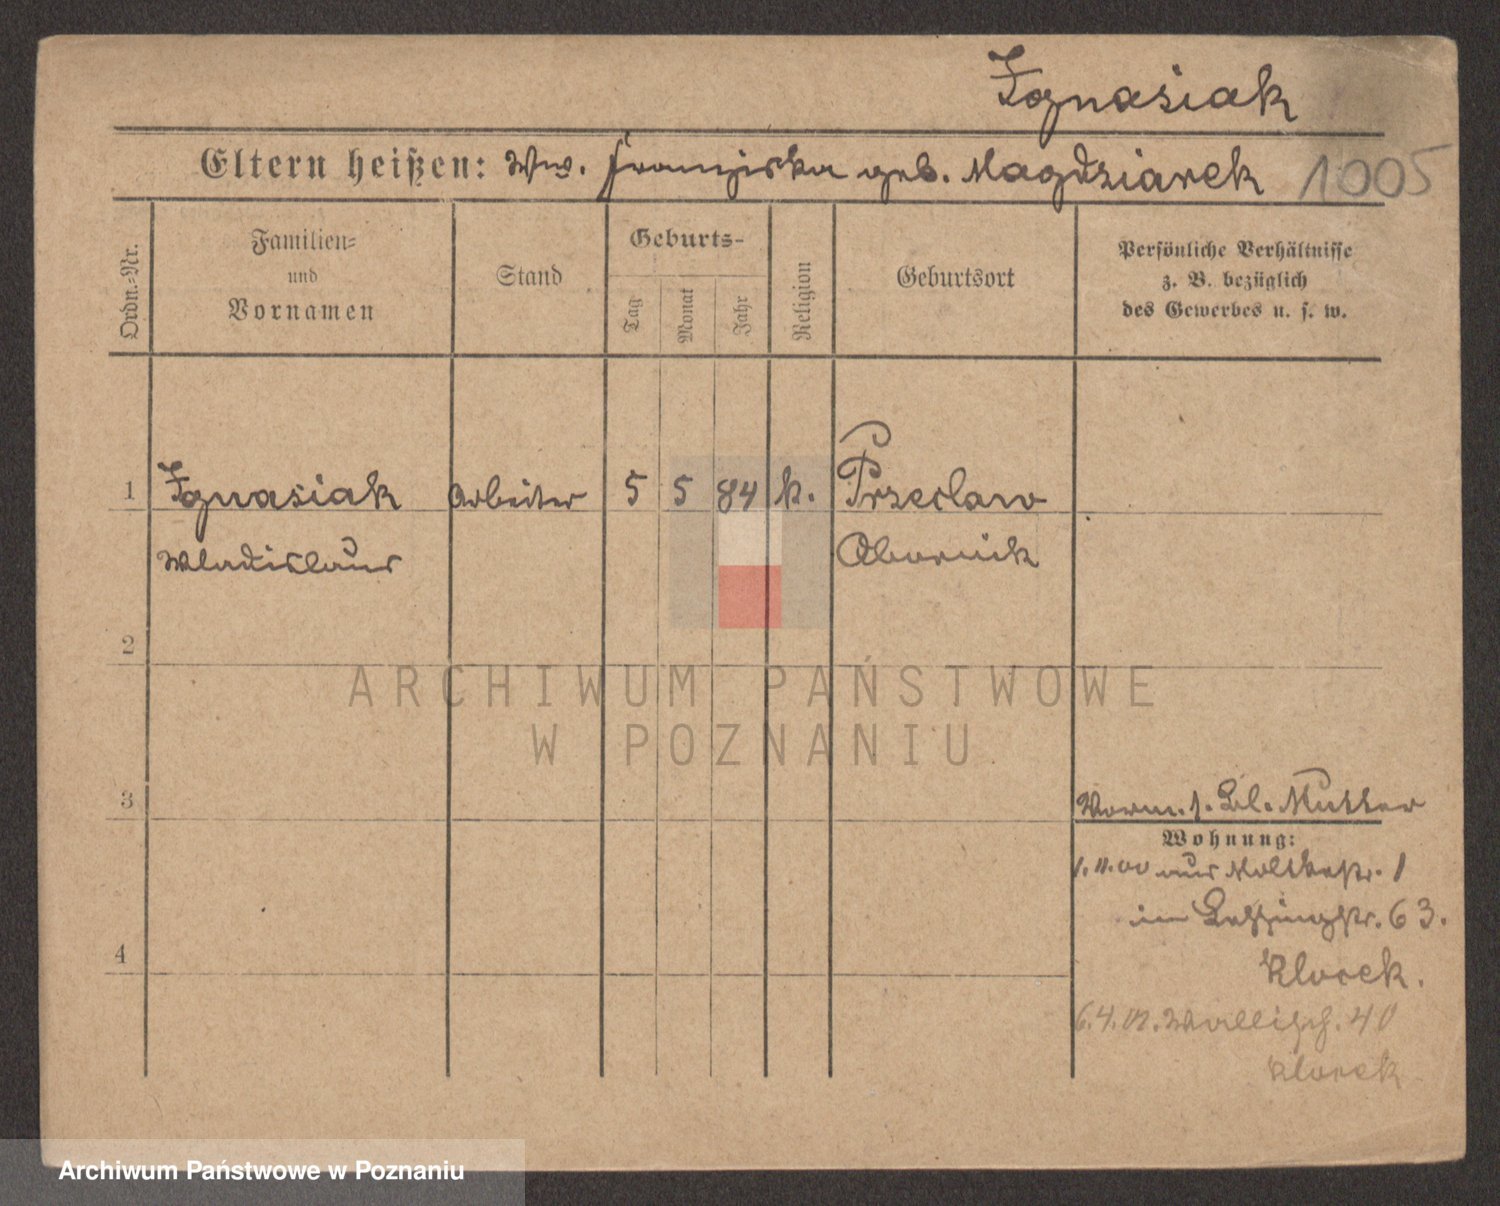 Ignasiak
Eltern heißen: Ww. Franziska geb. Magdziarek 1005
Ordn.-Nr.
Familien-
und
Vornamen
Stand
Geburts-
Tag
Monat
Jahr
Religion
Geburtsort
Persönliche Verhältnisse
z. B. bezüglich
des Gewerbes u. s. w.
1 Ignasiak Arbeiter 5 5 84 k. Przeclaw
Wladislaus Obornik
2
ARCHIWUM PAŃSTWOWE
W POZNANIU
3
Vorm. s. Bl. Mutter
Wohnung:
1.11.00 aus Moltkestr. 1
in Lessingstr. 63.
Klorek.
4
6.4.02. Wallisch. 40
Klorek
Archiwum Państwowe w Poznaniu